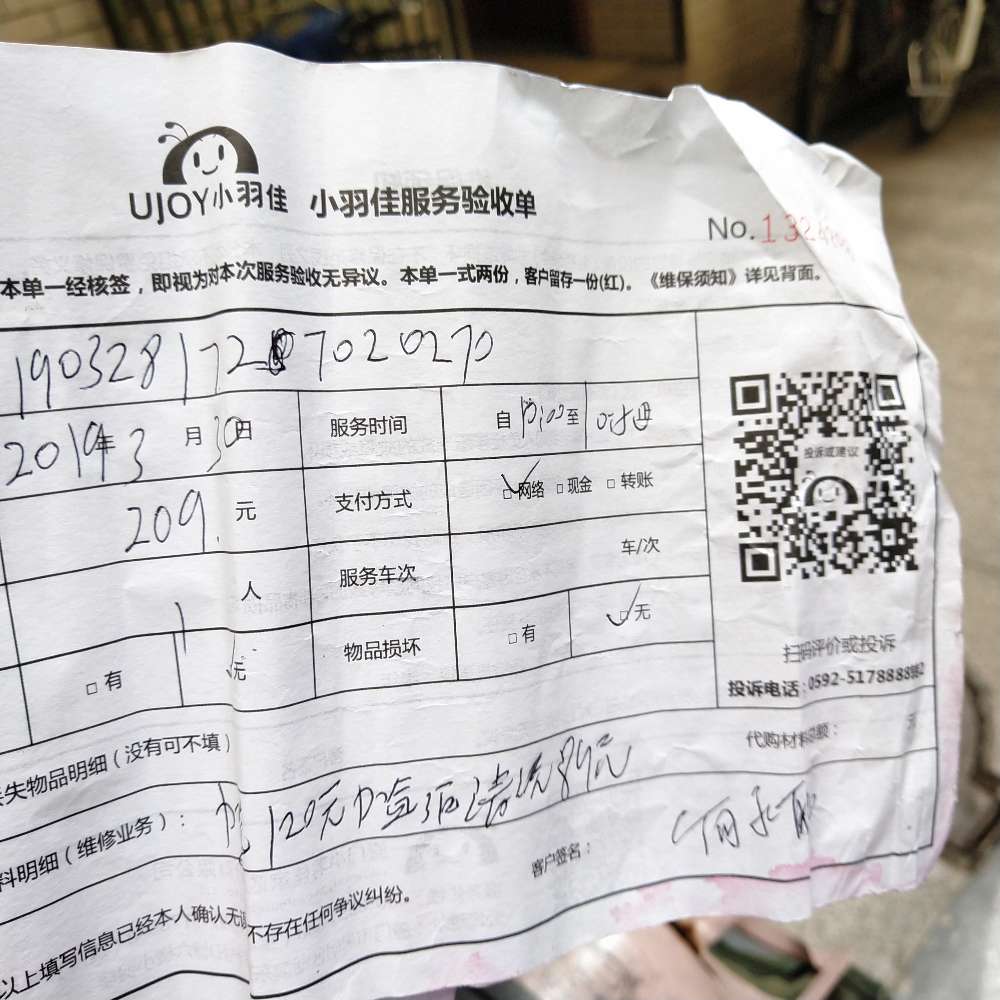 UJOY小羽佳 小羽佳服务验收单
No.132
本单一经核签，即视为对本次服务验收无异议。本单一式两份，客户留存一份(红)。《维保须知》详见背面。
190328172 7020270
2019年3月30日 服务时间 自 至
209元 支付方式 □网络 □现金 □转账
人 服务车次 车/次
□有 无 物品损坏 □有 □无
投诉或建议
扫码评价或投诉
投诉电话：0592-5178888
失物品明细（没有可不填）
代购材料总额： 元
料明细（维修业务）： 120元 清洗89元
客户签名：
以上填写信息已经本人确认无误 不存在任何争议纠纷。